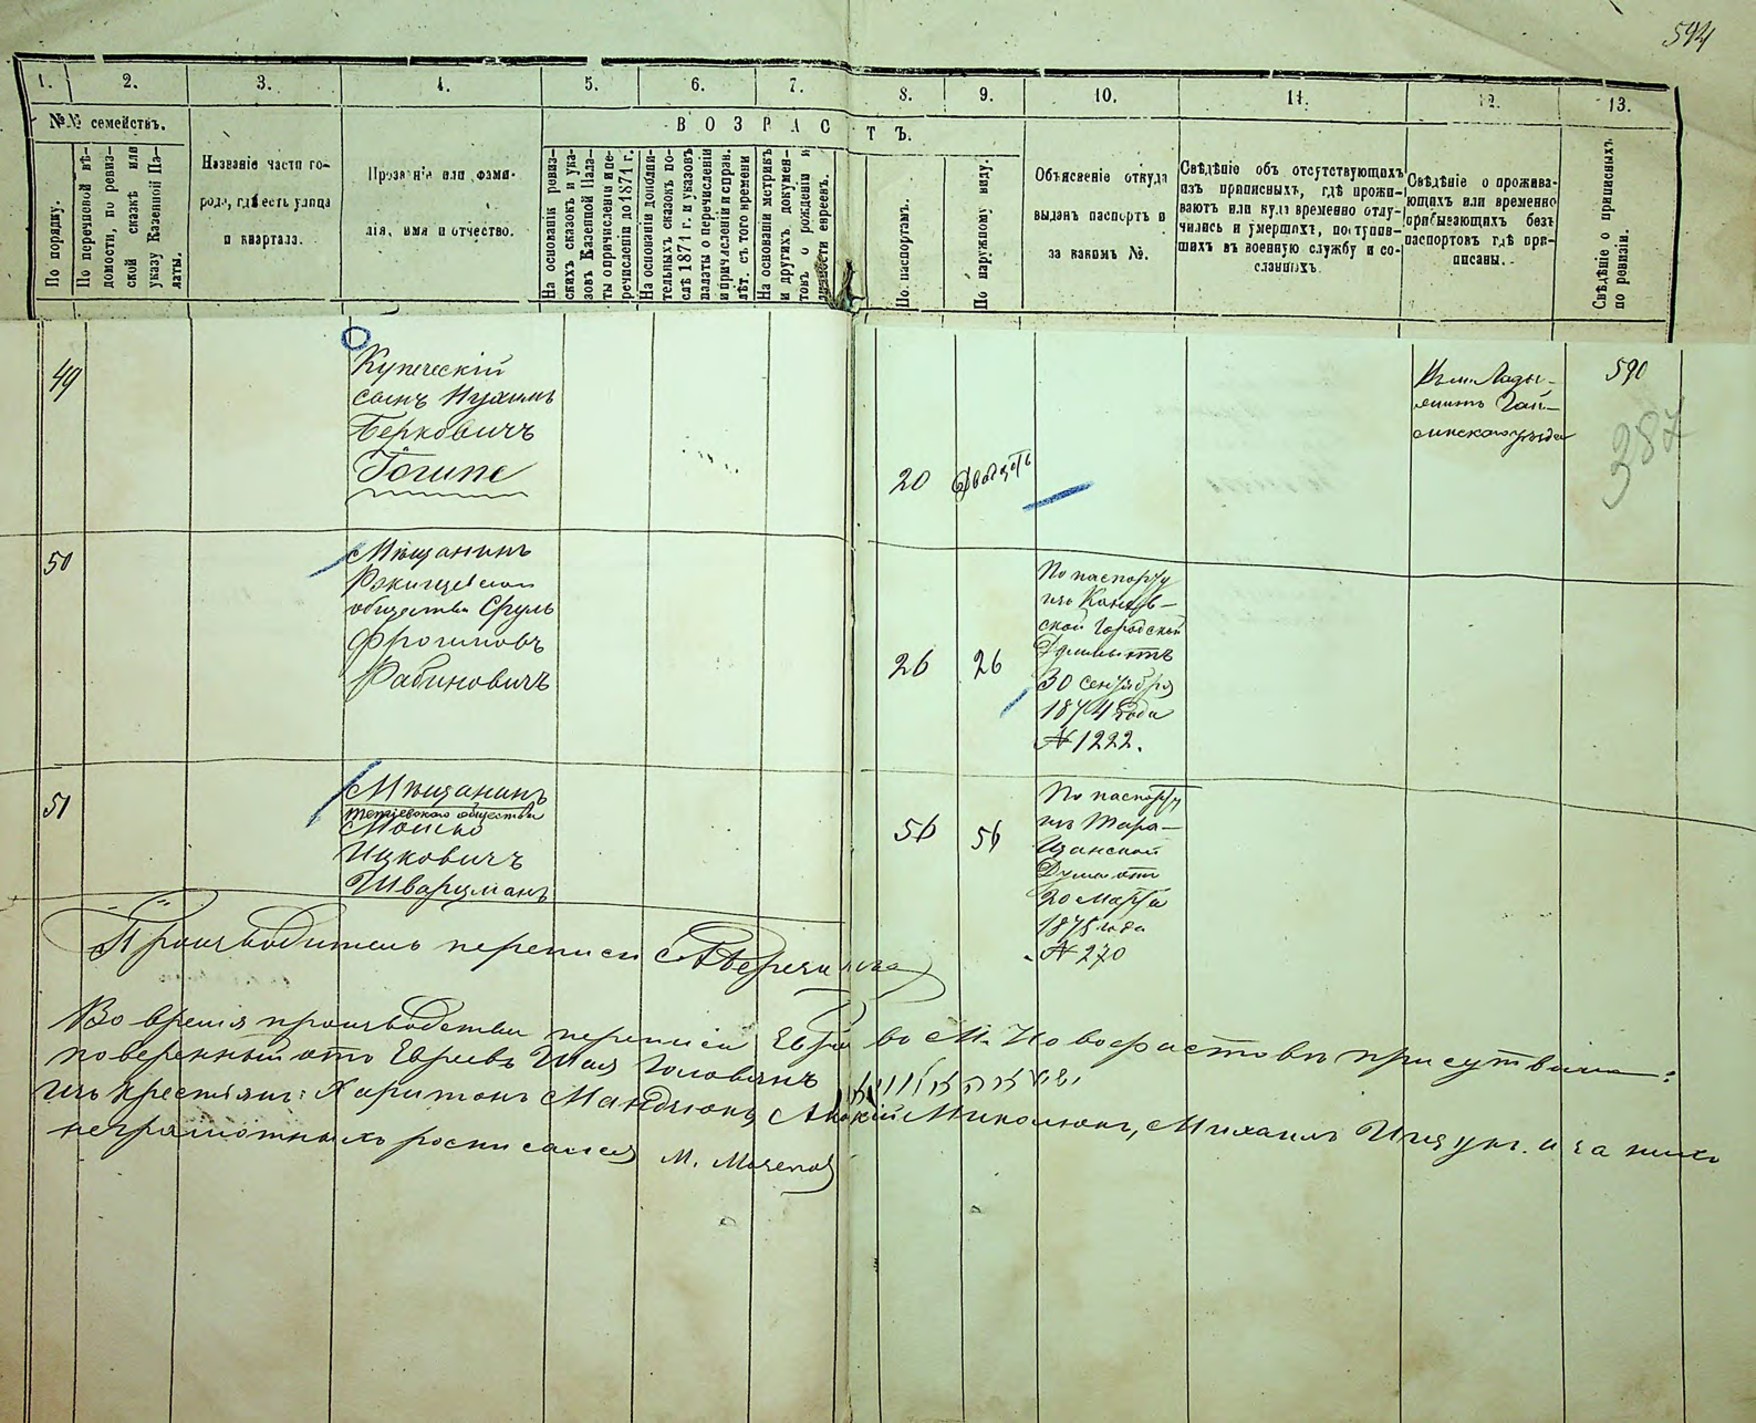 594
1. 2. 3. 4. 5. 6. 7. 8. 9. 10. 11. 12. 13.
№№ семействъ.
ВОЗРАСТЪ.
По порядку.
По перечневой вѣ-
домости, по ревиз-
ской сказкѣ или
указу Казенной Па-
латы.
Названіе части го-
рода, гдѣ есть улица
и квартала.
Прозваніе или фами-
лія, имя и отчество.
На основаніи ревиз-
скихъ сказокъ и ука-
зовъ Казенной Пала-
ты о причисленіи и пе-
речисленіи до 1874 г.
На основаніи дополни-
тельныхъ сказокъ по-
слѣ 1874 г. и указовъ
палаты о перечисленіи
и причисленіи и справ.
лѣт. съ того времени
На основаніи метрикъ
и другихъ докумен-
товъ о рожденіи и
личности евреевъ.
По паспортамъ.
По наружному виду.
Объясненіе откуда
выданъ паспортъ и
за какимъ №.
Свѣдѣніе объ отсутствующихъ
изъ приписныхъ, гдѣ прожи-
ваютъ или куда временно отлу-
чились и умершихъ, поступив-
шихъ въ военную службу и со-
сланныхъ.
Свѣдѣніе о прожива-
ющихъ или временно
прибывающихъ безъ
паспортовъ гдѣ при-
писаны.
Свѣдѣніе о приписныхъ
по ревизіи.
49
Купеческій
сынъ Нухимъ
Берковичъ
20
590
387
50
Мѣщанинъ
общества Сруль
Фроимовъ
Рабиновичъ
26
26
По паспорту
изъ Канев-
ской Городской
Думы отъ
30 сентября
1874 года
№ 1222.
51
Мѣщанинъ
тетіевскаго общества
Мошко
Ицковичъ
Шварцманъ
56
56
По паспорту
изъ Тара-
щанской
Думы отъ
20 Марта
1875 года
№ 270
Производитель переписи
Во время производства переписи во М. присутвіи:
повѣренный отъ Евреевъ Шая Головань
изъ крестьянъ: Харитонъ Михаилъ и за нихъ
неграмотныхъ росписался М.